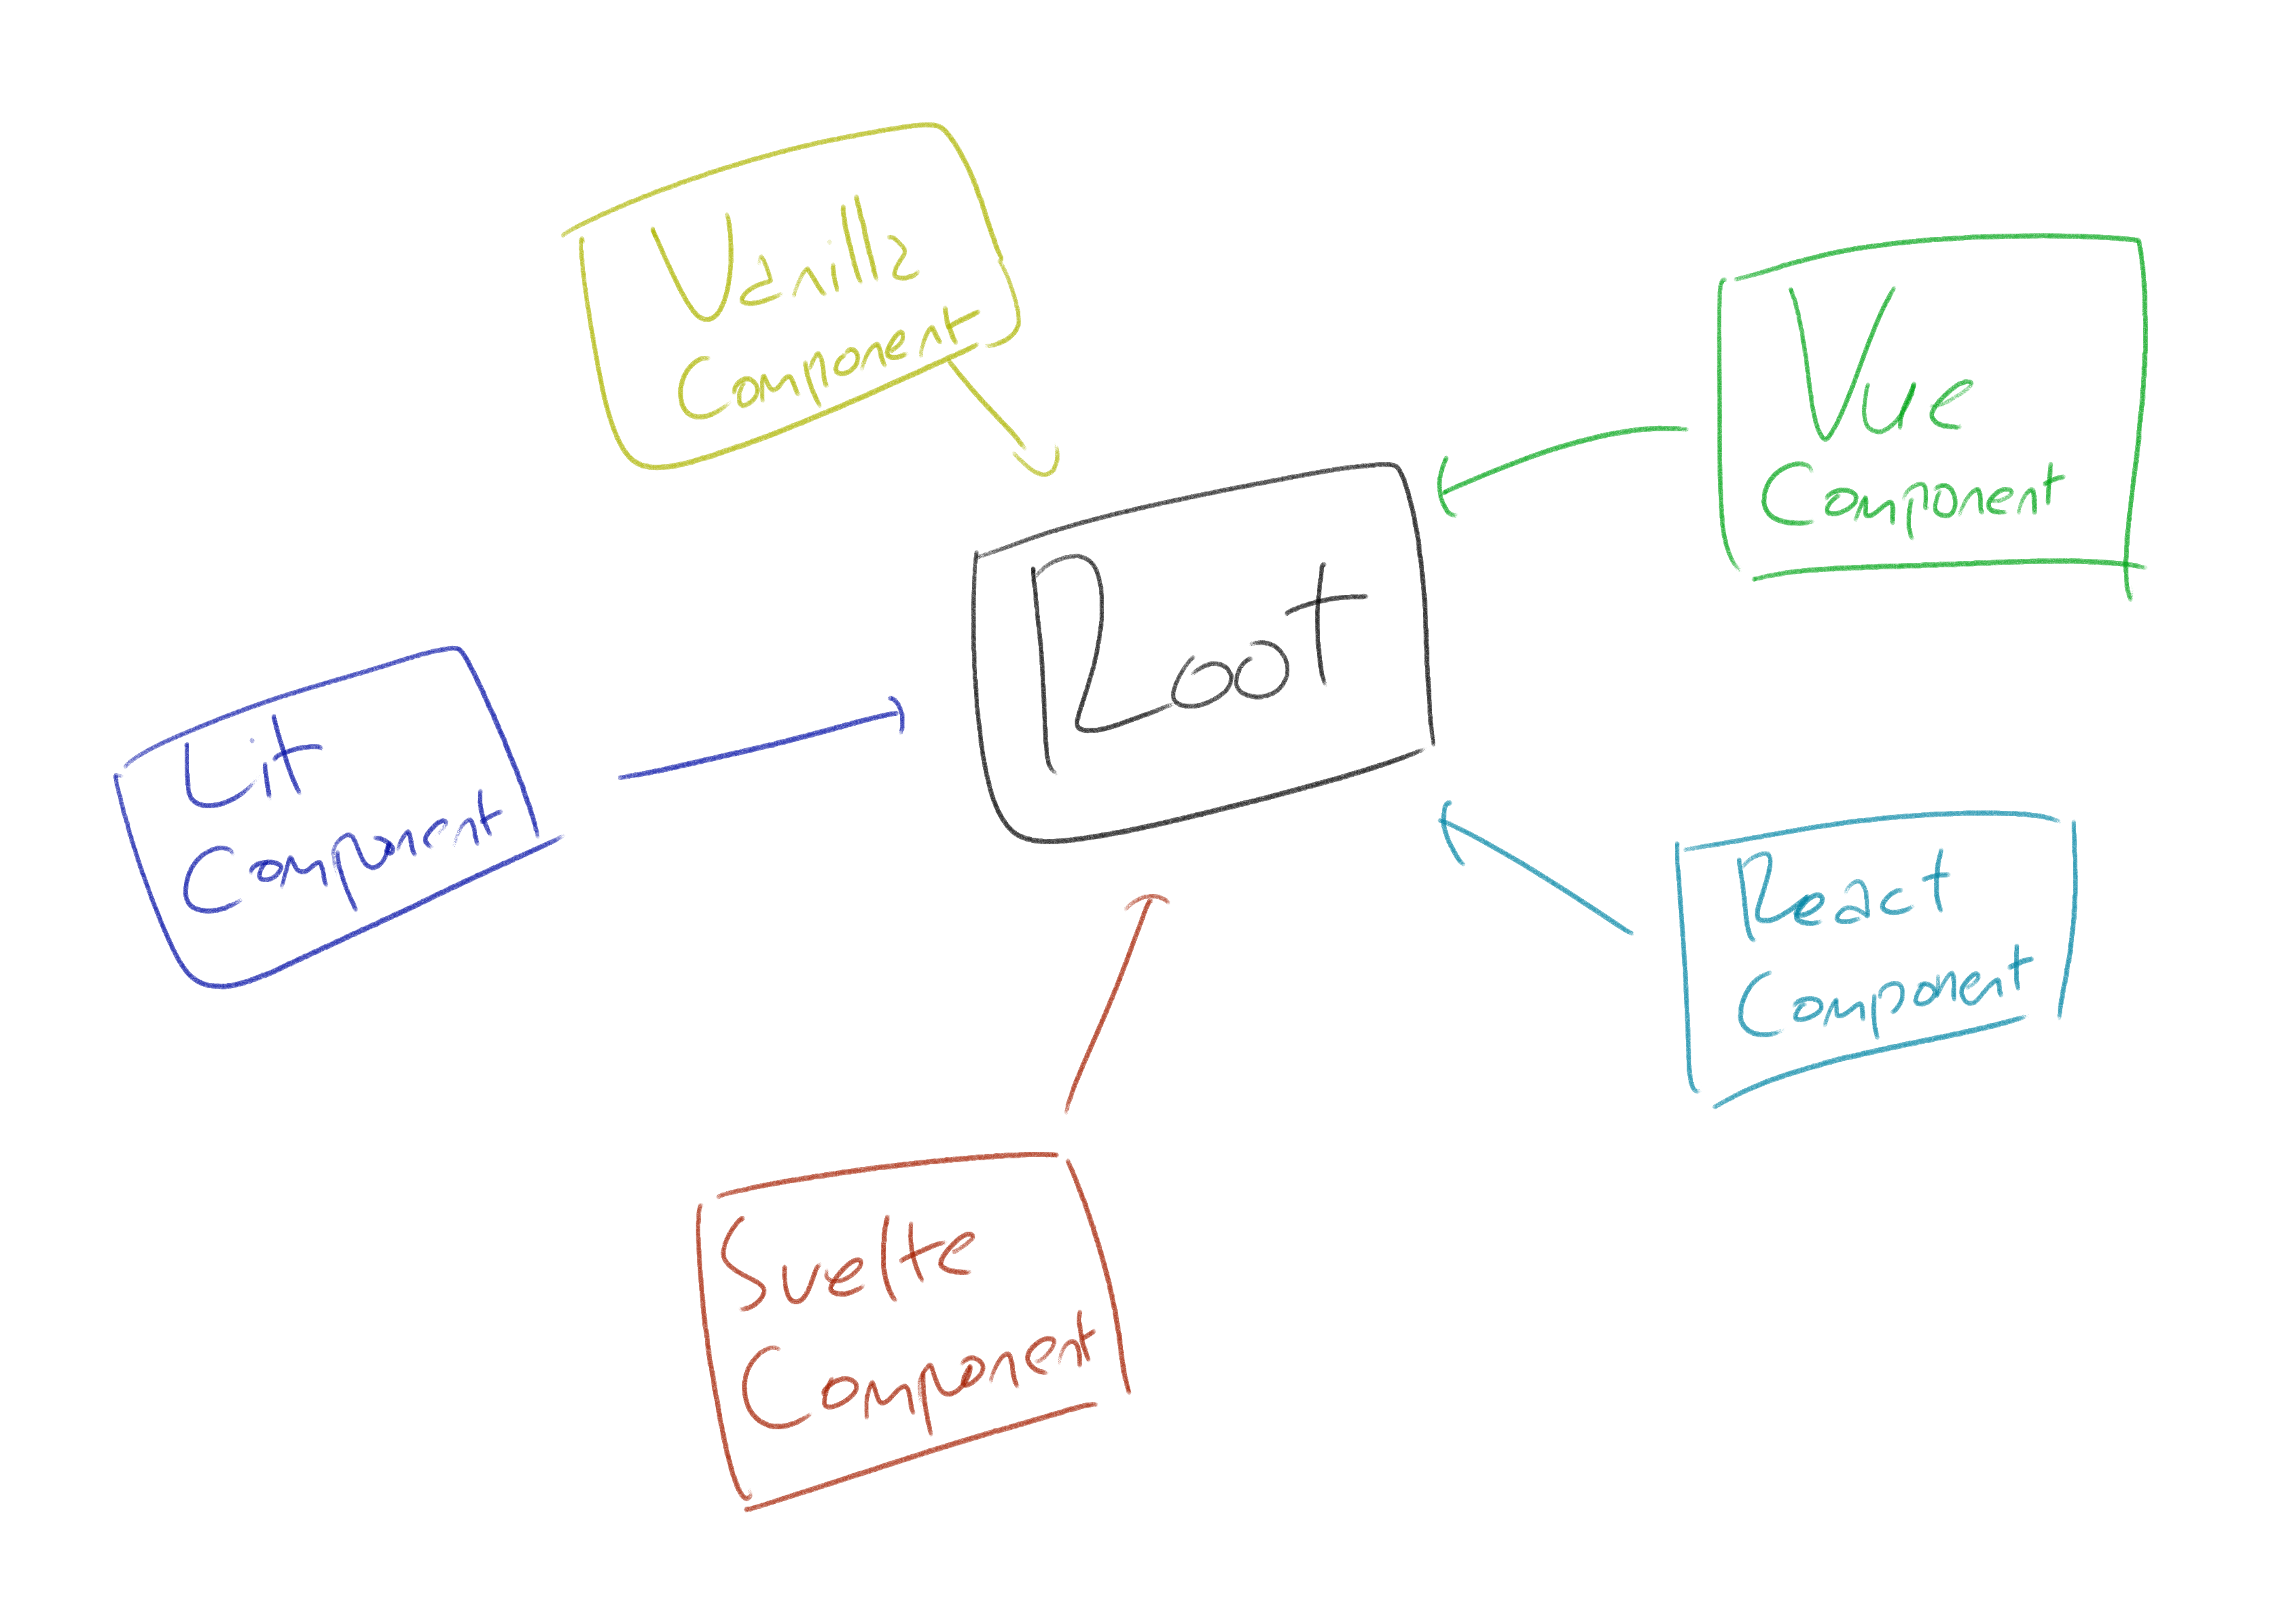 Vanilla
Component
Vue
Component
Root
Lit
Component
React
Component
Svelte
Component